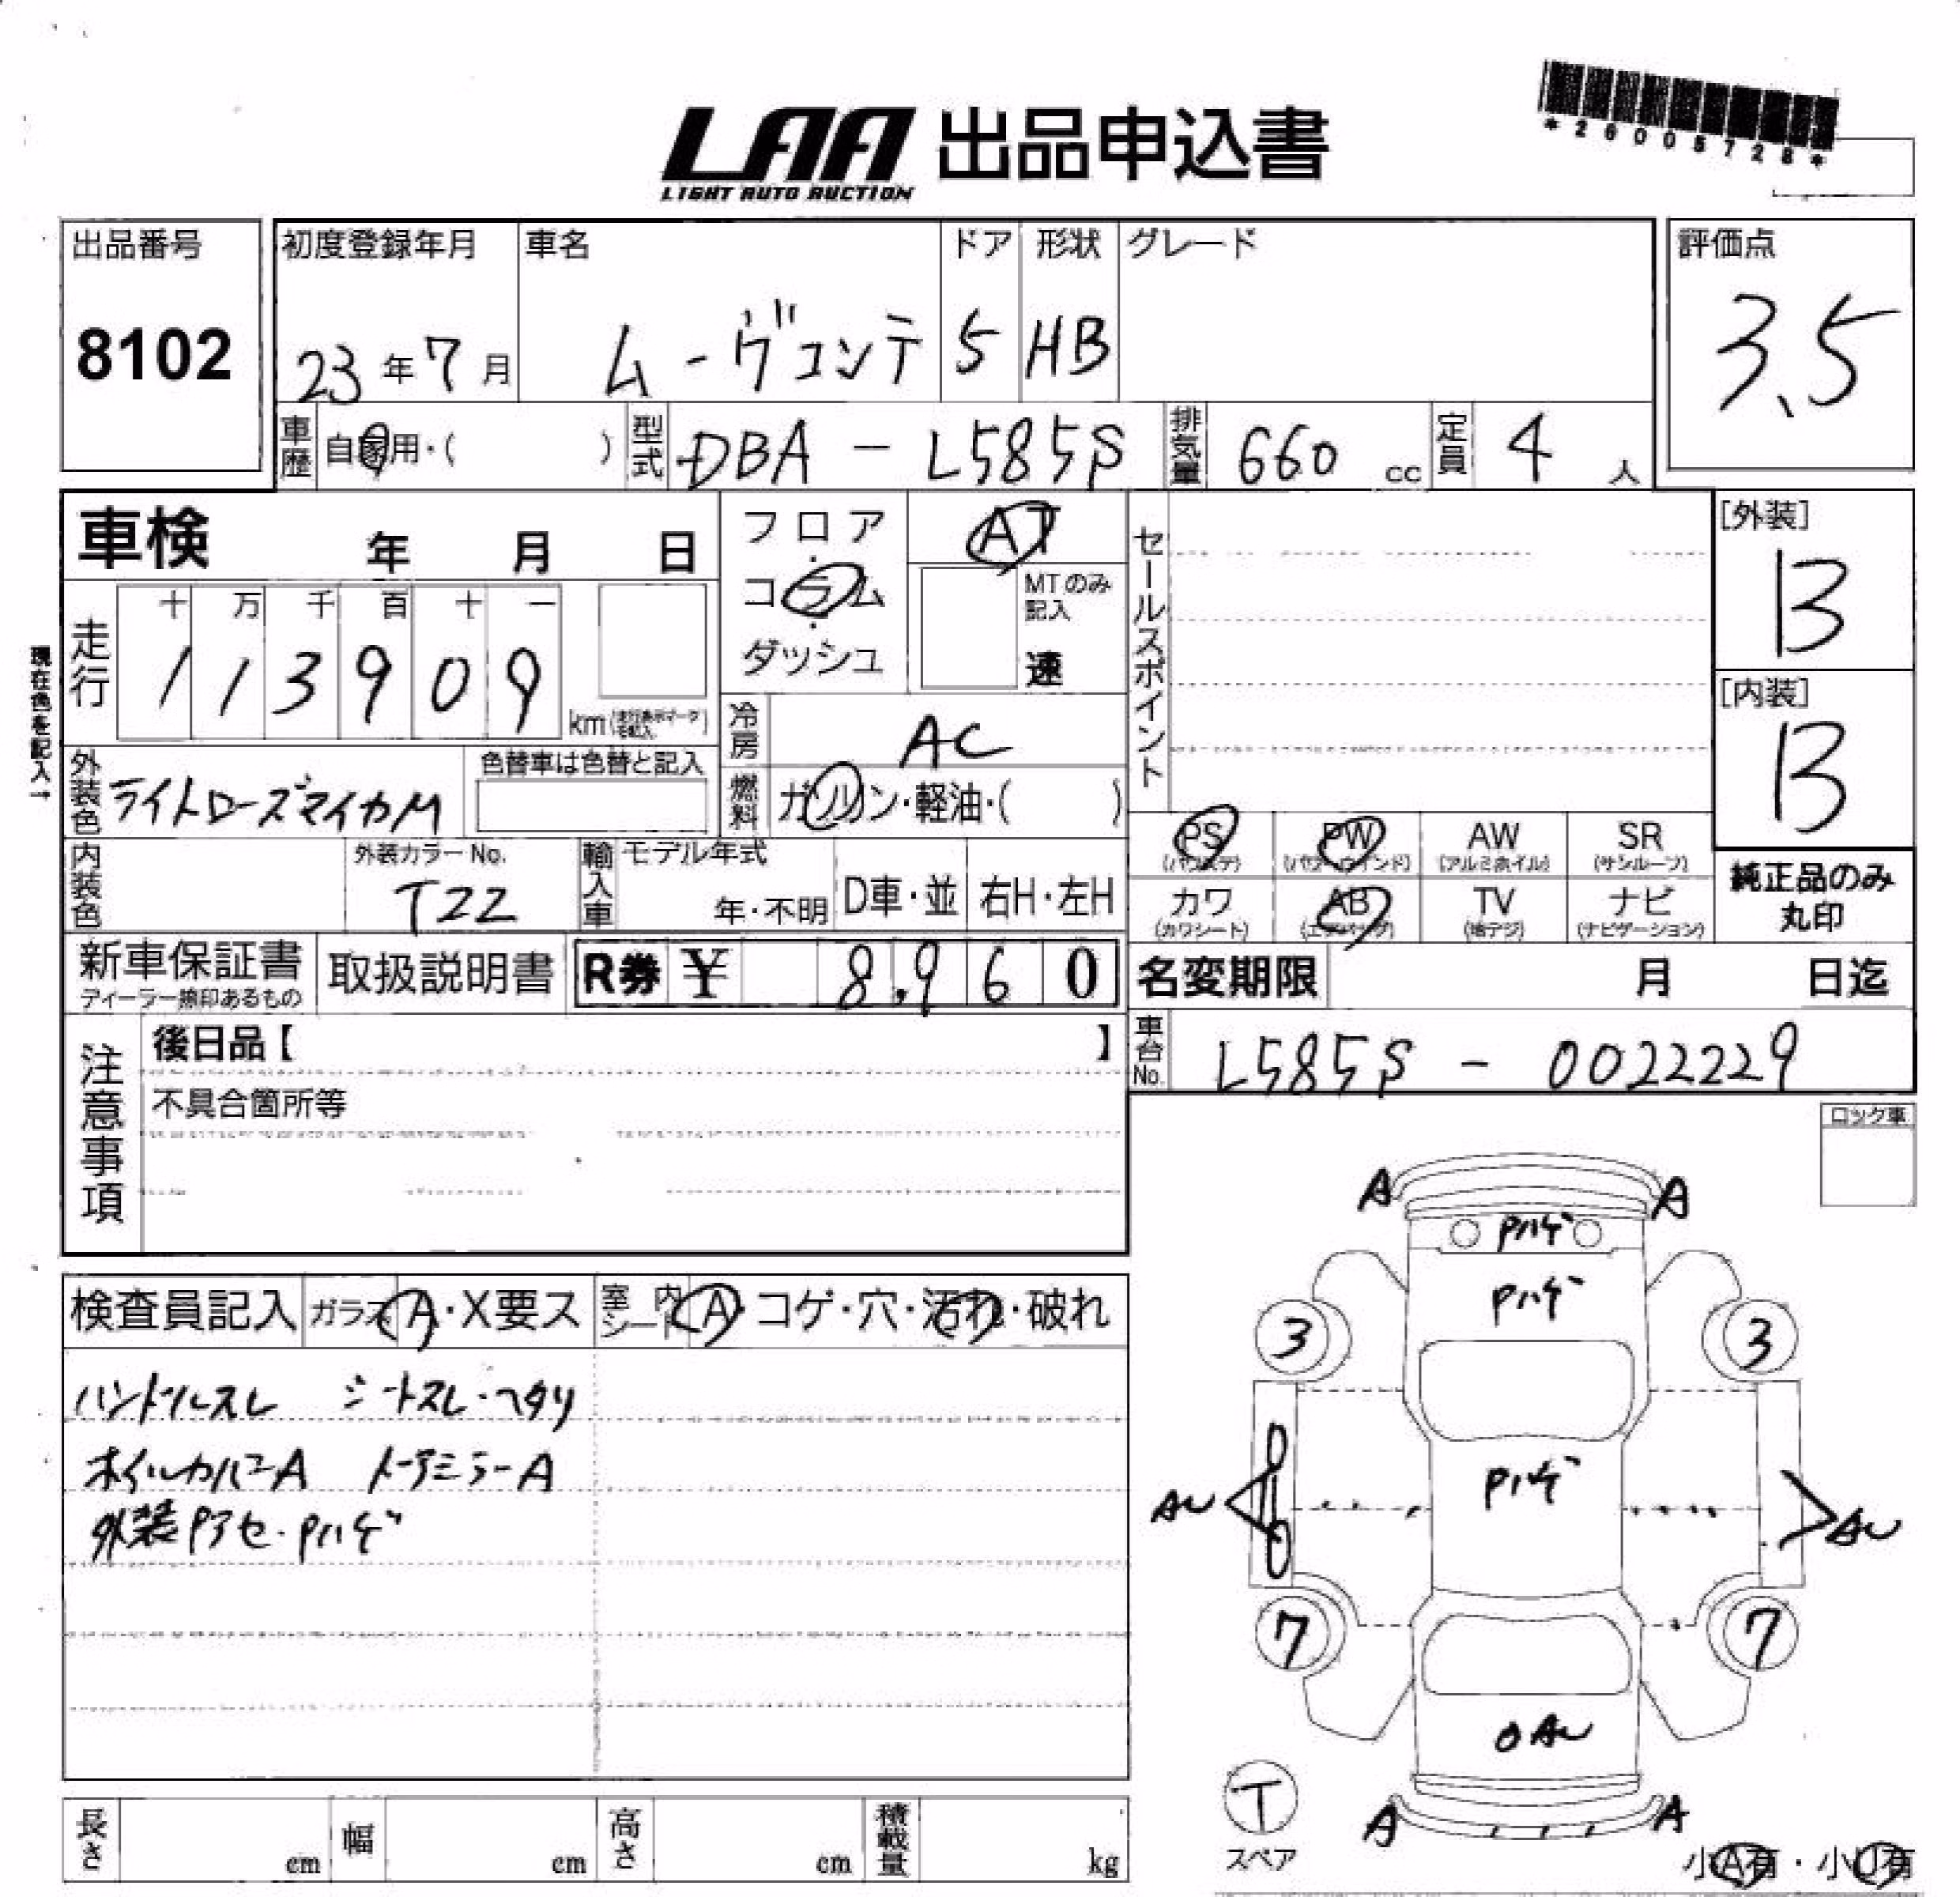 *26005728*
LAA 出品申込書
LIGHT AUTO AUCTION
出品番号 初度登録年月 車名 ドア 形状 グレード 評価点
8102 23年7月 ムーヴコンテ 5 HB 3.5
車歴 自家用・( ) 型式 DBA-L585S 排気量 660 cc 定員 4人
車検 年 月 日
フロア・コラム・ダッシュ
AT
MTのみ記入 速
セールスポイント
[外装] B
[内装] B
現在色を記入→
走行 十 万 千 百 十 一
113909 km
冷房 AC
外装色 ライトローズマイカM 色替車は色替と記入
燃料 ガソリン・軽油・( )
PS (パワステ) PW (パワーウインド) AW (アルミホイル) SR (サンルーフ)
カワ (カワシート) AB (エアバッグ) TV (地デジ) ナビ (ナビゲーション)
純正品のみ丸印
内装色 外装カラーNo. T22 輸入車 モデル年式 年・不明 D車・並 右H・左H
新車保証書 取扱説明書 R券 ¥ 8,960
ディーラー捺印あるもの
名変期限 月 日迄
車台No. L585S - 0022229
注意事項 後日品【 】
不具合箇所等
ロック車
検査員記入 ガラス A・X要ス 室内シート A・コゲ・穴・汚れ・破れ
ハンドルスレ シートスレ・ヘタリ
ホイルカバーA ドアミラーA
外装Pアセ・Pハゲ
A A
Pハゲ
Pハゲ
3 3
Pハゲ
AU AU
7 7
AU
T
スペア
A A
小A有・小U有
長さ cm 幅 cm 高さ cm 積載量 kg